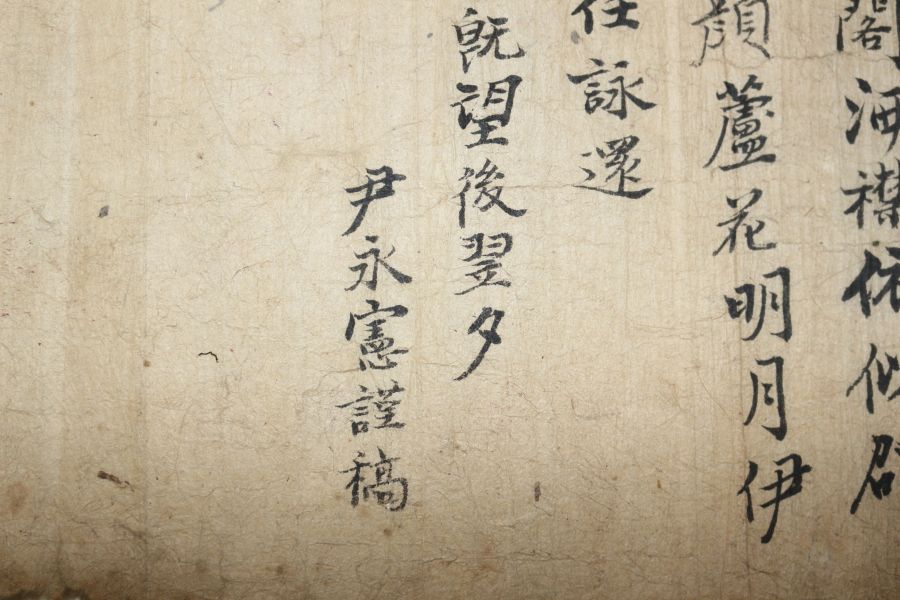 閣海襟依似
顔蘆花明月伊
任詠還
既望後翌夕
尹永憲謹稿